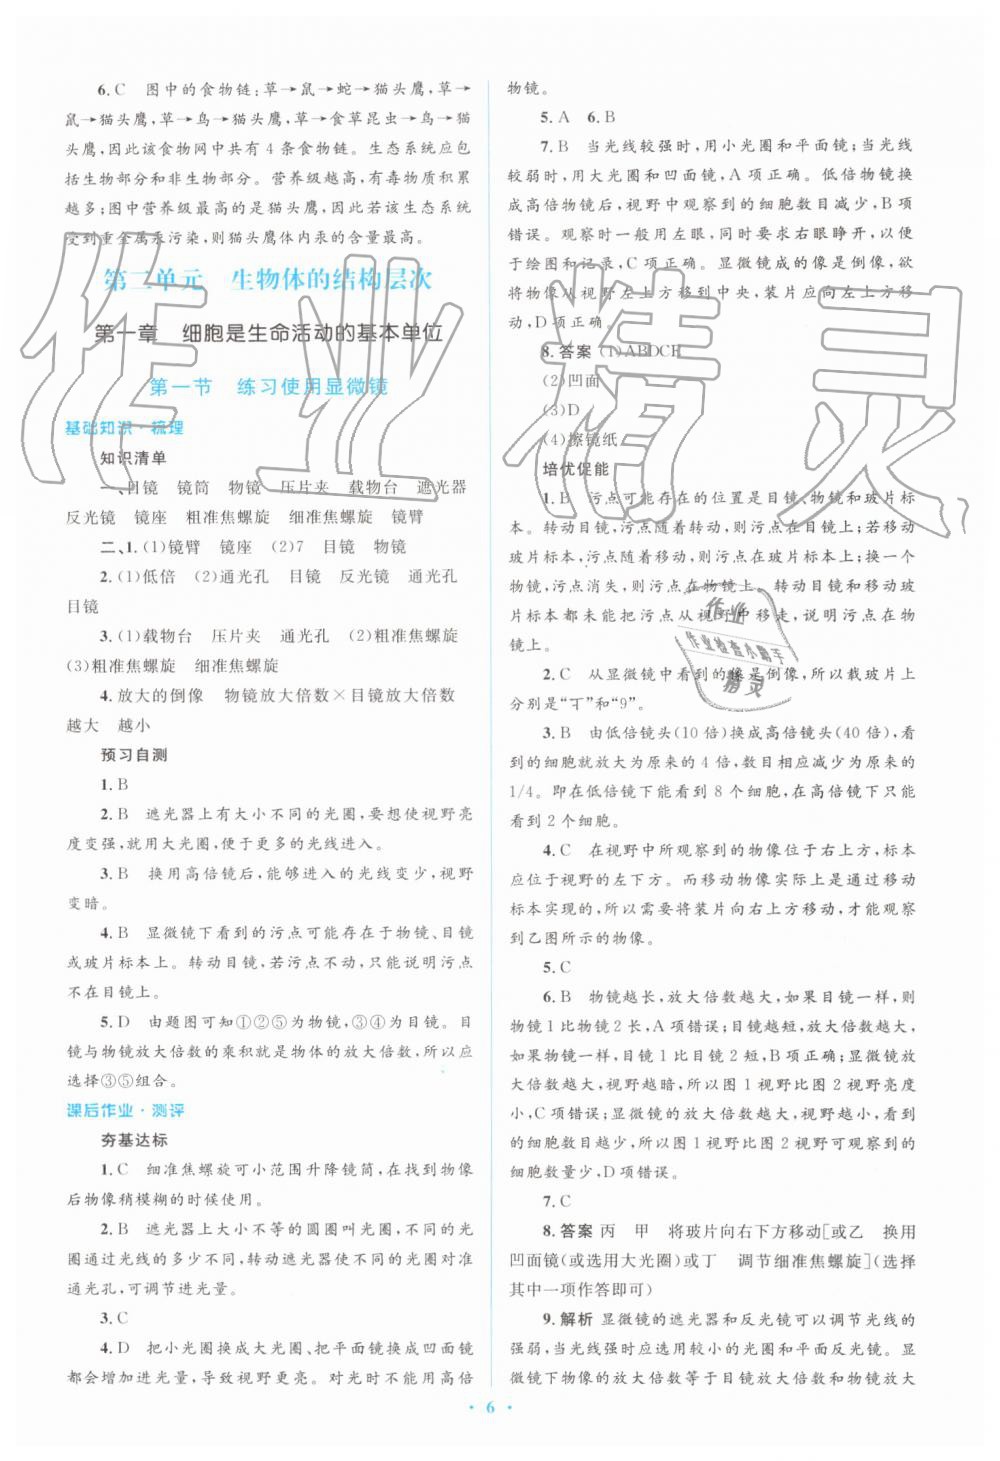 6. C　图中的食物链:草→鼠→蛇→猫头鹰,草→
鼠→猫头鹰,草→鸟→猫头鹰,草→食草昆虫→鸟→猫
头鹰,因此该食物网中共有 4 条食物链。生态系统应包
括生物部分和非生物部分。营养级越高,有毒物质积累
越多;图中营养级最高的是猫头鹰,因此若该生态系统
受到重金属汞污染,则猫头鹰体内汞的含量最高。
第二单元　生物体的结构层次
第一章　细胞是生命活动的基本单位
第一节　练习使用显微镜
基础知识·梳理
知识清单
一、目镜　镜筒　物镜　压片夹　载物台　遮光器
反光镜　镜座　粗准焦螺旋　细准焦螺旋　镜臂
二、1. (1)镜臂　镜座　(2)7　目镜　物镜
2. (1)低倍　(2)通光孔　目镜　反光镜　通光孔
目镜
3. (1)载物台　压片夹　通光孔　(2)粗准焦螺旋
(3)粗准焦螺旋　细准焦螺旋
4. 放大的倒像　物镜放大倍数×目镜放大倍数
越大　越小
预习自测
1. B
2. B　遮光器上有大小不同的光圈,要想使视野亮
度变强,就用大光圈,便于更多的光线进入。
3. B　换用高倍镜后,能够进入的光线变少,视野
变暗。
4. B　显微镜下看到的污点可能存在于物镜、目镜
或玻片标本上。转动目镜,若污点不动,只能说明污点
不在目镜上。
5. D　由题图可知①②⑤为物镜,③④为目镜。目
镜与物镜放大倍数的乘积就是物体的放大倍数,所以应
选择③⑤组合。
课后作业·测评
夯基达标
1. C　细准焦螺旋可小范围升降镜筒,在找到物像
后物像稍模糊的时候使用。
2. B　遮光器上大小不等的圆圈叫光圈,不同的光
圈通过光线的多少不同,转动遮光器使不同的光圈对准
通光孔,可调节进光量。
3. C
4. D　把小光圈换成大光圈、把平面镜换成凹面镜
都会增加进光量,导致视野更亮。对光时不能用高倍
物镜。
5. A　6. B
7. B　当光线较强时,用小光圈和平面镜;当光线
较弱时,用大光圈和凹面镜,A 项正确。低倍物镜换
成高倍物镜后,视野中观察到的细胞数目减少,B 项
错误。观察时一般用左眼,同时要求右眼睁开,以便
绘图和记录,C 项正确。显微镜成的像是倒像,欲
将物像从视野左上方移到中央,装片应向左上方移
动,D 项正确。
8. 答案　(1)ABDCE
(2)凹面
(3)D
(4)擦镜纸
培优促能
1. B　污点可能存在的位置是目镜、物镜和玻片标
本。转动目镜,污点随着转动,则污点在目镜上;若移动
玻片标本,污点随着移动,则污点在玻片上;换一个
物镜,污点消失,则污点在物镜上。转动目镜和移动玻
片标本都未能把污点从视野中移走,说明污点在物
镜上。
2. C　从显微镜中看到的像是倒像,所以载玻片上
分别是“丁”和“9”。
3. B　由低倍镜头(10 倍)换成高倍镜头(40 倍),看
到的细胞就放大为原来的 4 倍,数目相应减少为原来的
1/4。即在低倍镜下能看到 8 个细胞,在高倍镜下只能
看到 2 个细胞。
4. C　在视野中所观察到的物像位于右上方,标本
应位于视野的左下方。而移动物像实际上是通过移动
标本实现的,所以需要将装片向右上方移动,才能观察
到乙图所示的物像。
5. C
6. B　物镜越长,放大倍数越大,如果目镜一样,则
物镜 1 比物镜 2 长,A 项错误;目镜越短,放大倍数越大,
如果物镜一样,目镜 1 比目镜 2 短,B 项正确;显微镜放
大倍数越大,视野越暗,所以图 1 视野比图 2 视野亮度
小,C 项错误;显微镜的放大倍数越大,视野越小,看到
的细胞数目越少,所以图 1 视野比图 2 视野可观察到的
细胞数量少,D 项错误。
7. C
8. 答案　丙　甲　将玻片向右下方移动[或乙　换用
凹面镜(或选用大光圈)或丁　调节细准焦螺旋](选择
其中一项作答即可)
9. 解析　显微镜的遮光器和反光镜可以调节光线的
强弱,当光线强时应选用较小的光圈和平面镜。显
微镜下物像的放大倍数等于目镜放大倍数和物镜放大
· 6 ·
作业精灵
作业
作业检查小助手
精灵